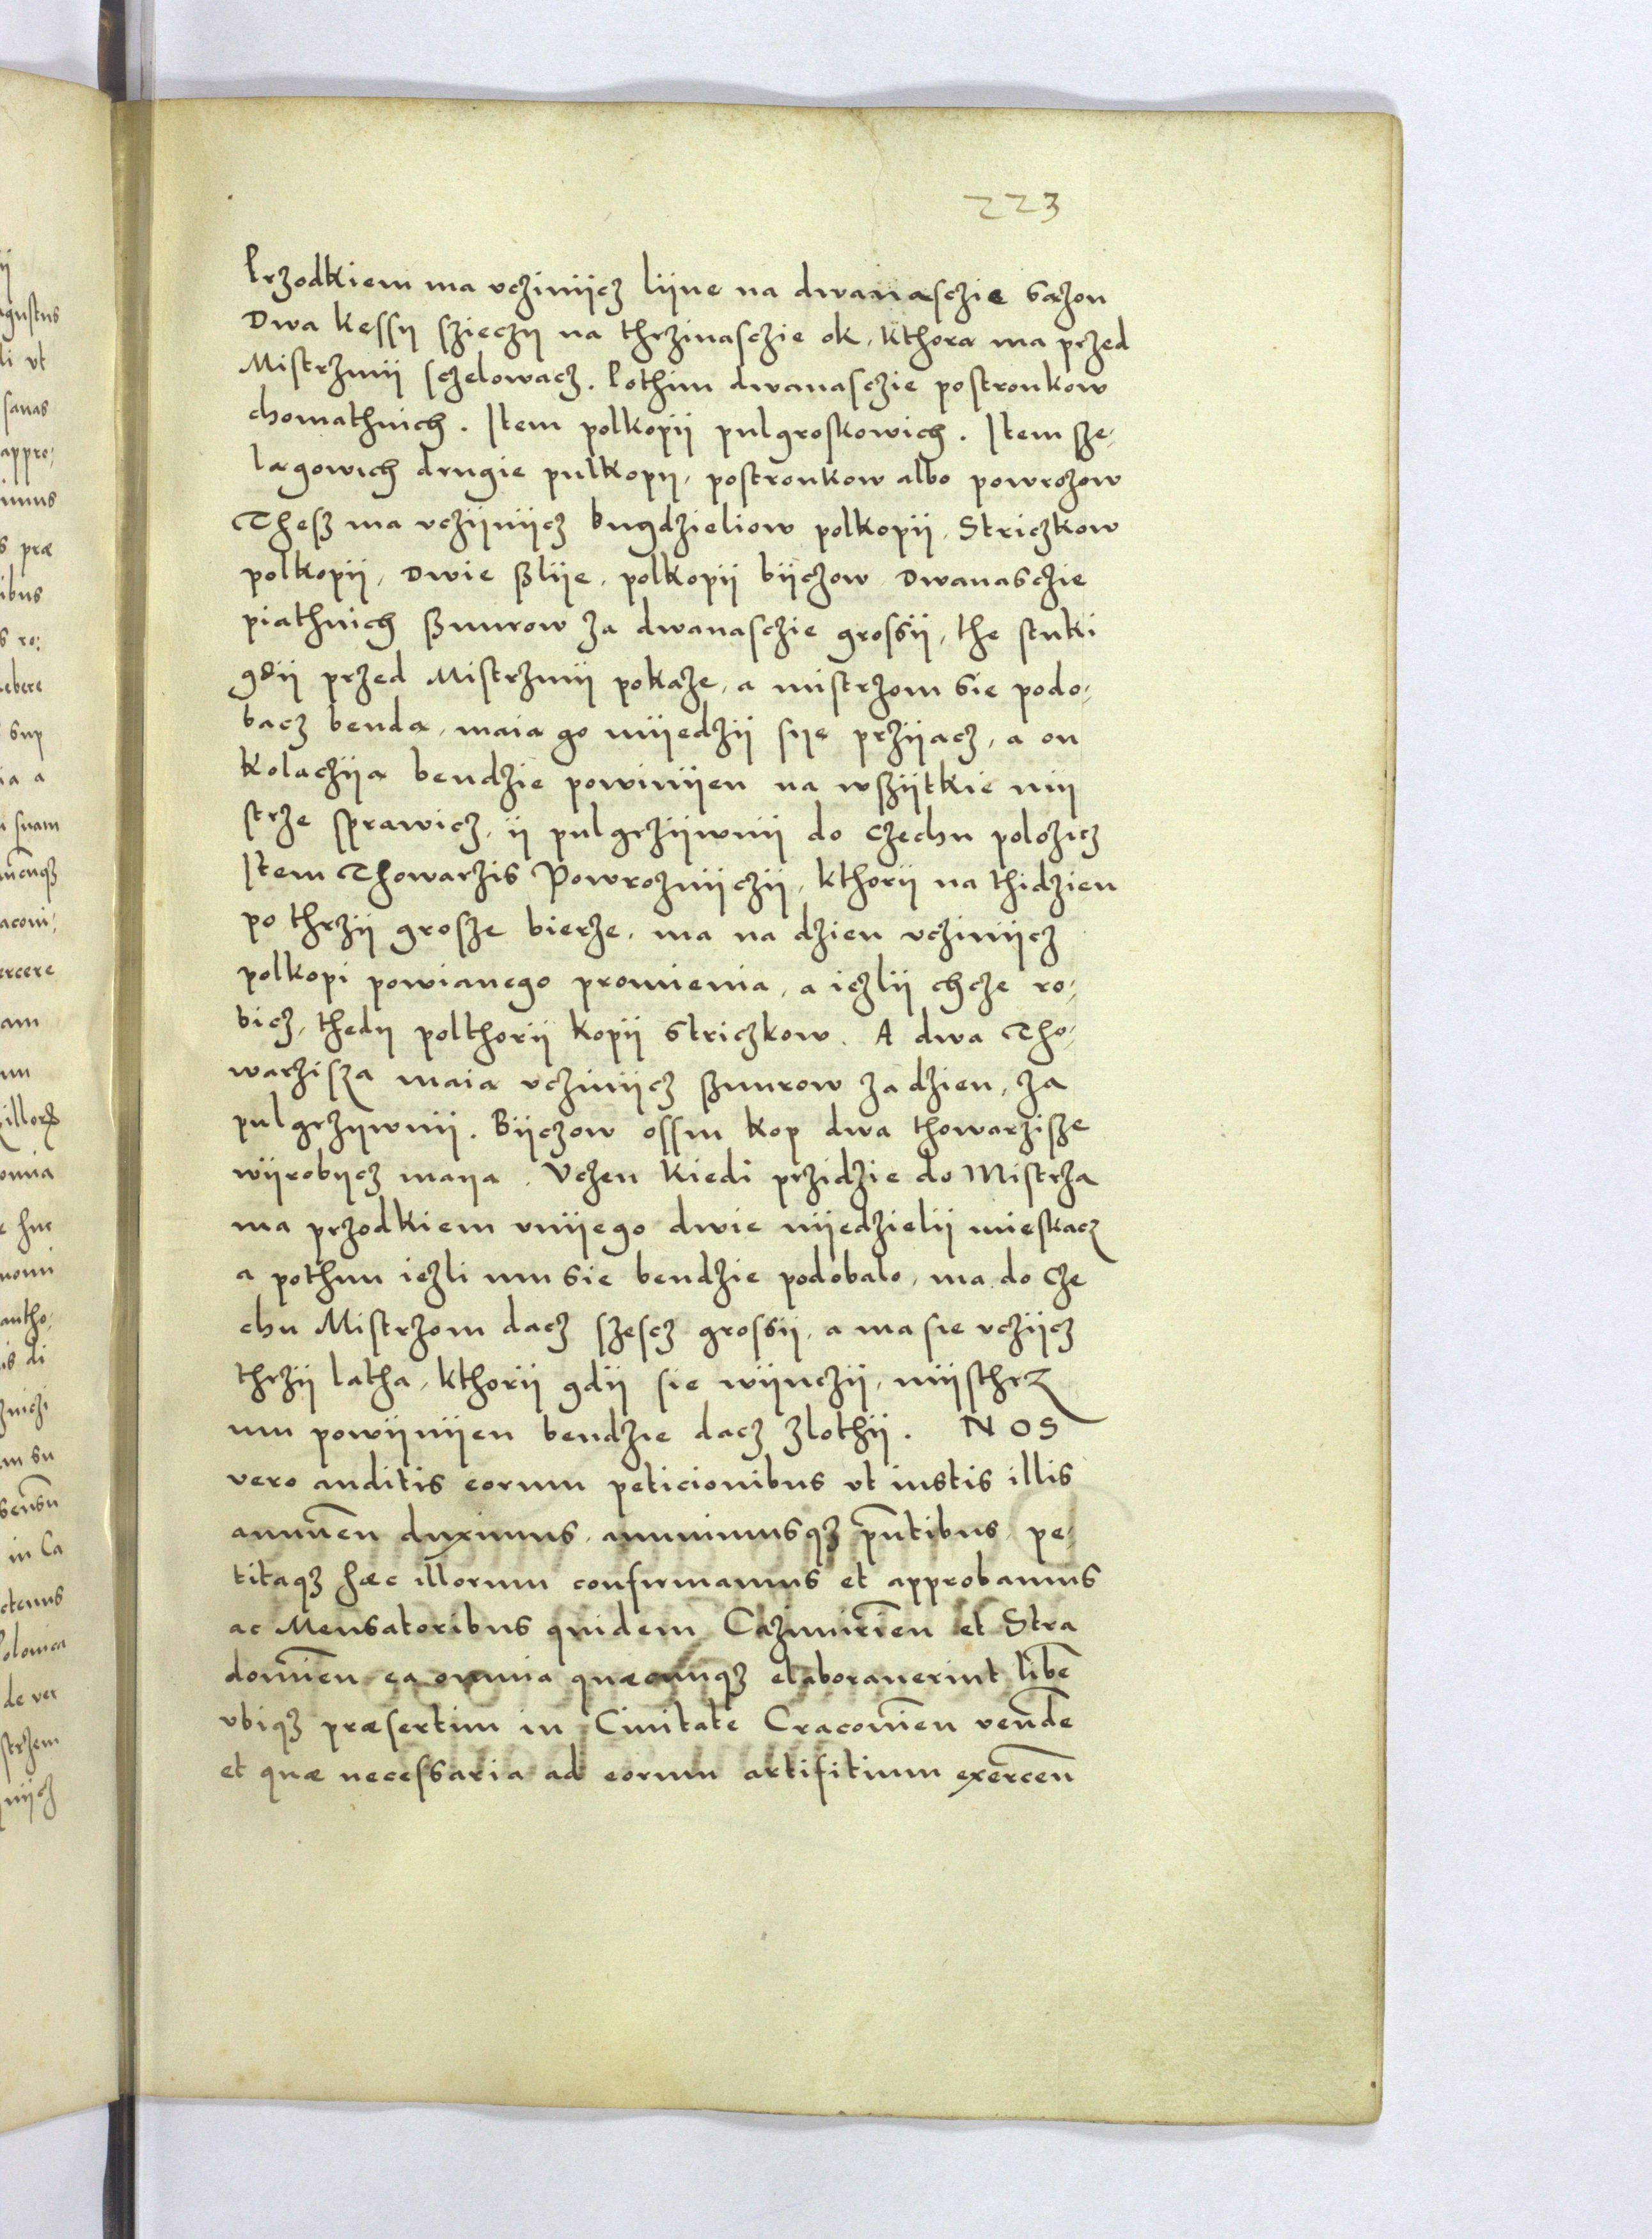 223
Przodkiem ma vczinijcz lijne na dwanasczie sazon
Dwa kessy szieczy na thrzinasczie ok, kthora ma przed
Mistrzmij sczelowacz. Pothim dwanasczie postronkow
chomathnich. Item polkopij pulgroskowich. Item sze,
lagowich drugie pulkopy, postronkow albo powrozow
Thesz ma vczijnijcz bugdzieliow polkopij, Striczkow
polkopij, Dwie szlije, polkopij bijczow Dwanasczie
piathnich sznurow za dwanasczie grossij, the stuki
gdij przed Mistrzmij pokaze, a mistrzom sie podo,
bacz benda, maia go mijedzij sye przijacz, a on
kolaczija bendzie powinijen na wszijtkie mij
strze sprawicz, ij pulgrzijwnij do czechu polozicz
Item Thowarzis Powroznijczij, kthorij na thidzien
po thrzij grosze bierze, ma na dzien vczinijcz
polkopi powianego promienia, a iezlij chcze ro,
bicz, thedy polthorij kopij striczkow. A dwa Tho,
warzisza maia vczinijcz sznurow za dzien, za
pulgrzywnij. Bijczow ossm kop dwa thowarzisze
wijrobycz maya. Vczen kiedi przidzie do Mistrza
ma przodkiem vnijego dwie nijedzielij mieskacz
a pothim iezli mu sie bendzie podobalo, ma do cze
chu Mistrzom dacz szescz grossij, a ma sie vczijcz
thrzij latha, kthorij gdij sie wijuczij, mijsthrz
mu powijnijen bendzie dacz zlothij. NOS
vero auditis eorum peticionibus vt iustis illis
annuen̄ duximus, annuimusqz pn̄tibus, pe,
titaqz hæc illorum confirmamus et approbamus
ac Mensatoribus quidem Cazimirien̄ et Stra
domien̄ ea omnia quæcunqz elaborauerint libe̅
vbiqz præsertim in Ciuitate Cracouien̄ vende̅
et quæ necessaria ad eorum artifitium exercen̄